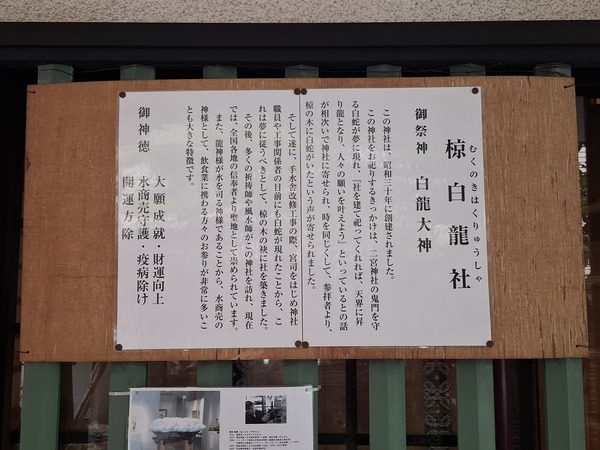 むくのきはくりゅうしゃ
椋白龍社
御祭神　白龍大神
この神社は、昭和三十年に創建されました。
この神社をお祀りするきっかけは、二宮神社の鬼門を守
る白蛇が夢に現れ、「社を建て祀ってくれれば、天界に昇
り龍となり、人々の願いを叶えよう」といっているとの話
が相次いで神社に寄せられ、時を同じくして、参拝者より、
椋の木に白蛇がいたという声が寄せられました。
そして遂に、手水舎改修工事の際、宮司をはじめ神社
職員や工事関係者の目前にも白蛇が現れたことから、こ
れは夢に従うべきとして、椋の木の袂に社を築きました。
その後、多くの祈祷師や風水師がこの神社を訪れ、現在
では、全国各地の信奉者より聖地として崇められています。
また、龍神様が水を司る神様であることから、水商売の
神様として、飲食業に携わる方々のお参りが非常に多いこ
とも大きな特徴です。
御神徳　大願成就・財運向上
水商売守護・疫病除け
開運方除